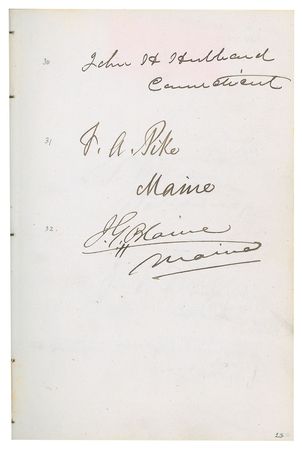 30 John H Hubbard
Connecticut
31 F. A. Pike
Maine
32. J. G. Blaine
Maine
15